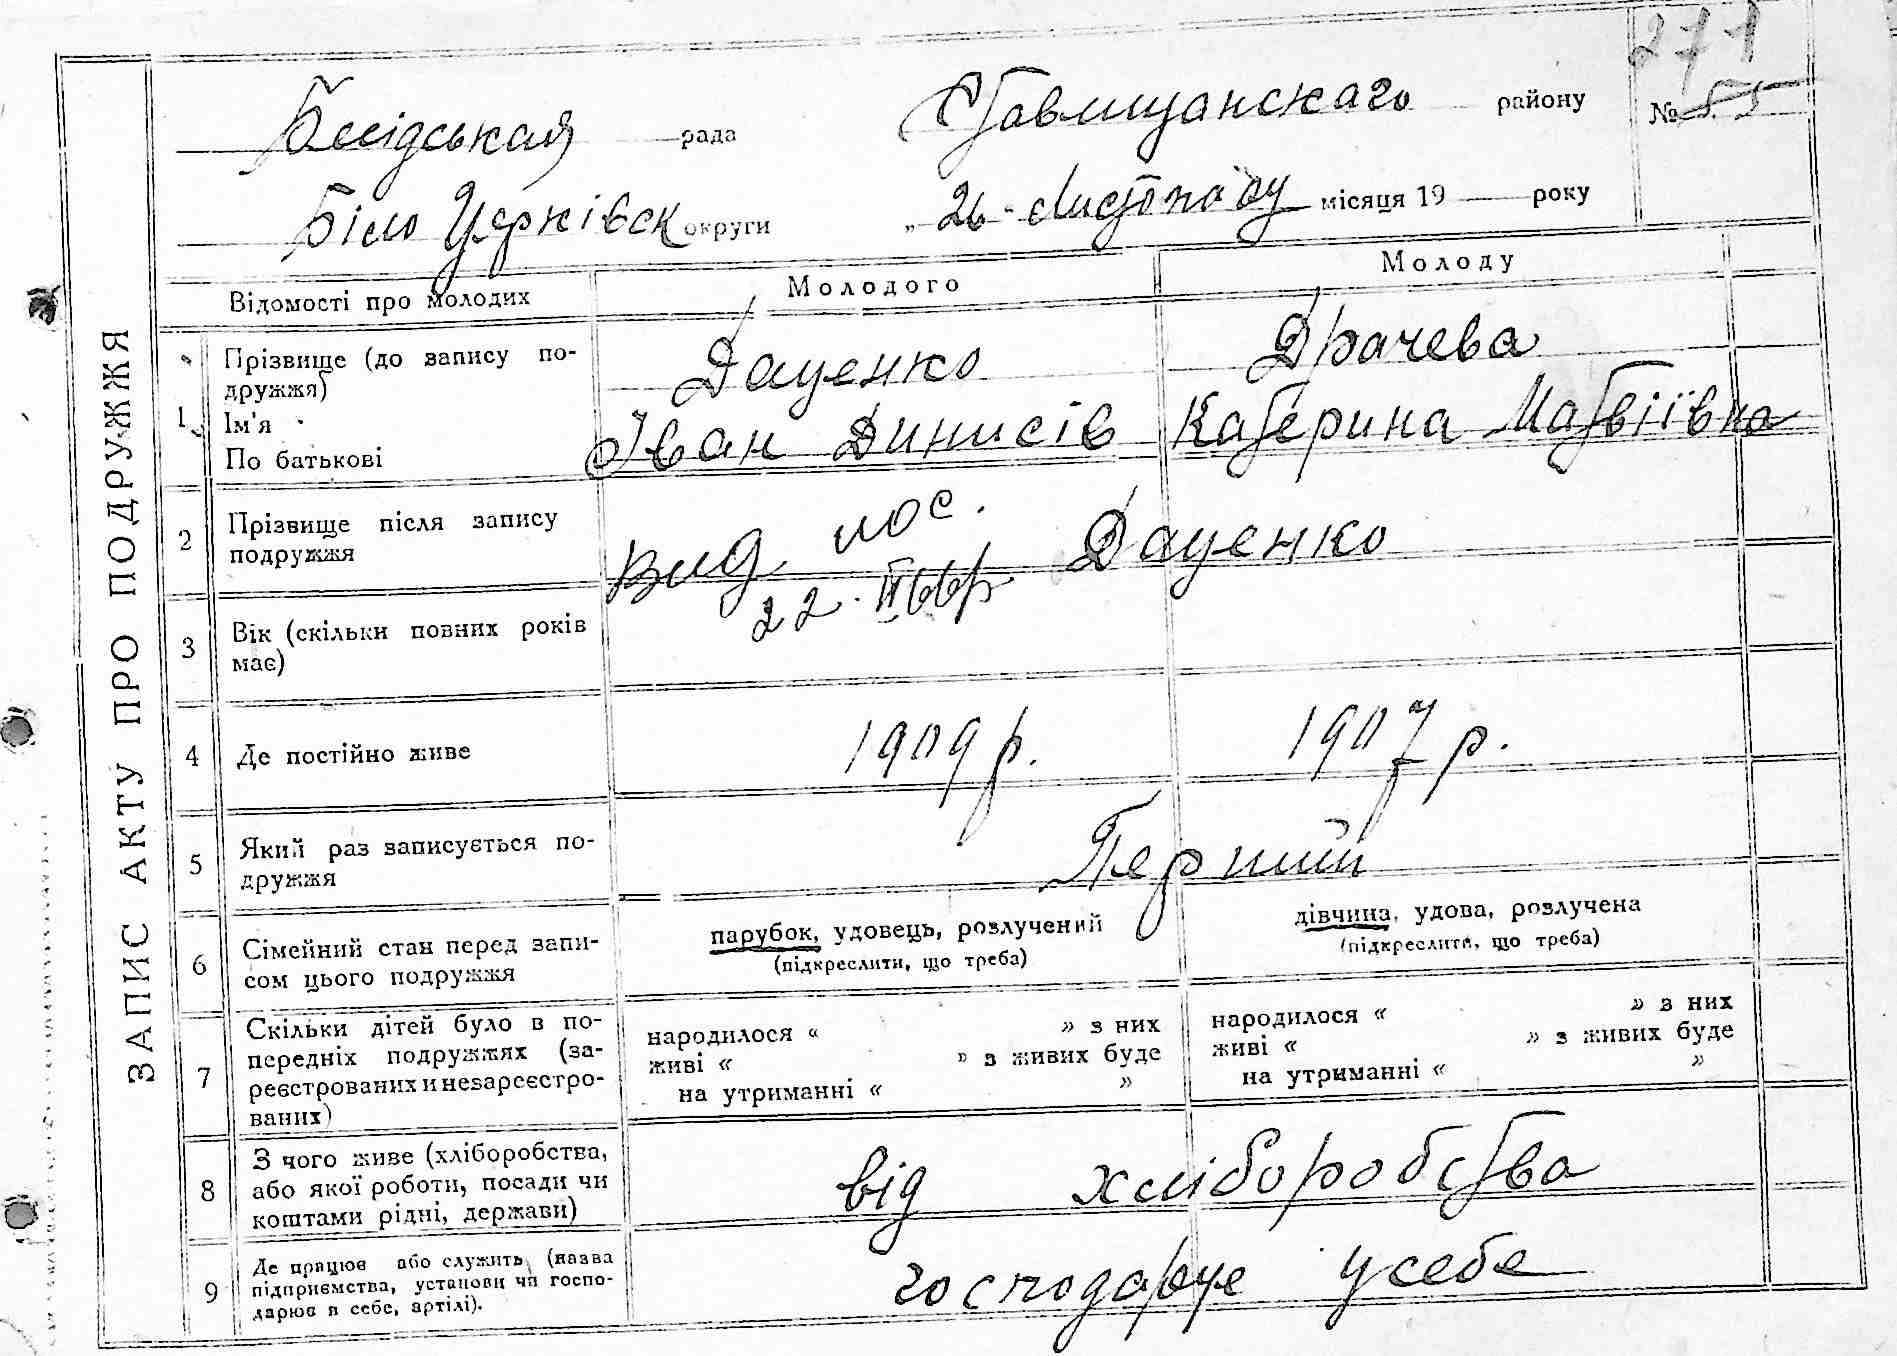 271
Бесідськая рада Ставищанскаго району № 55
Біло Церківск округи „ 26 - Листопаду місяця 19 року
Відомості про молодих Молодого Молоду
ЗАПИС АКТУ ПРО ПОДРУЖЖЯ
1 Прізвище (до запису по-
дружжя) Даценко Драчева
Ім'я
По батькові Іван Динисів Катерина Матвіївна
2 Прізвище після запису
подружжя Даценко
Вид пос.
22. II 66р
3 Вік (скільки повних років
має)
4 Де постійно живе 1909 р. 1907 р.
5 Який раз записується по-
дружжя Перший
6 Сімейний стан перед запи-
сом цього подружжя
парубок, удовець, розлучений
(підкреслити, що треба)
дівчина, удова, розлучена
(підкреслити, що треба)
7 Скільки дітей було в по-
передніх подружжях (за-
реєстрованих и незареєстро-
ваних)
народилося « » з них
живі « » з живих буде
на утриманні « »
народилося « » з них
живі « » з живих буде
на утриманні « »
8 З чого живе (хліборобства,
або якої роботи, посади чи
коштами рідні, держави)
від хліборобства
9 Де працює або служить (назва
підприємства, установи чи госпо-
дарює в себе, артілі).
господарує у себе